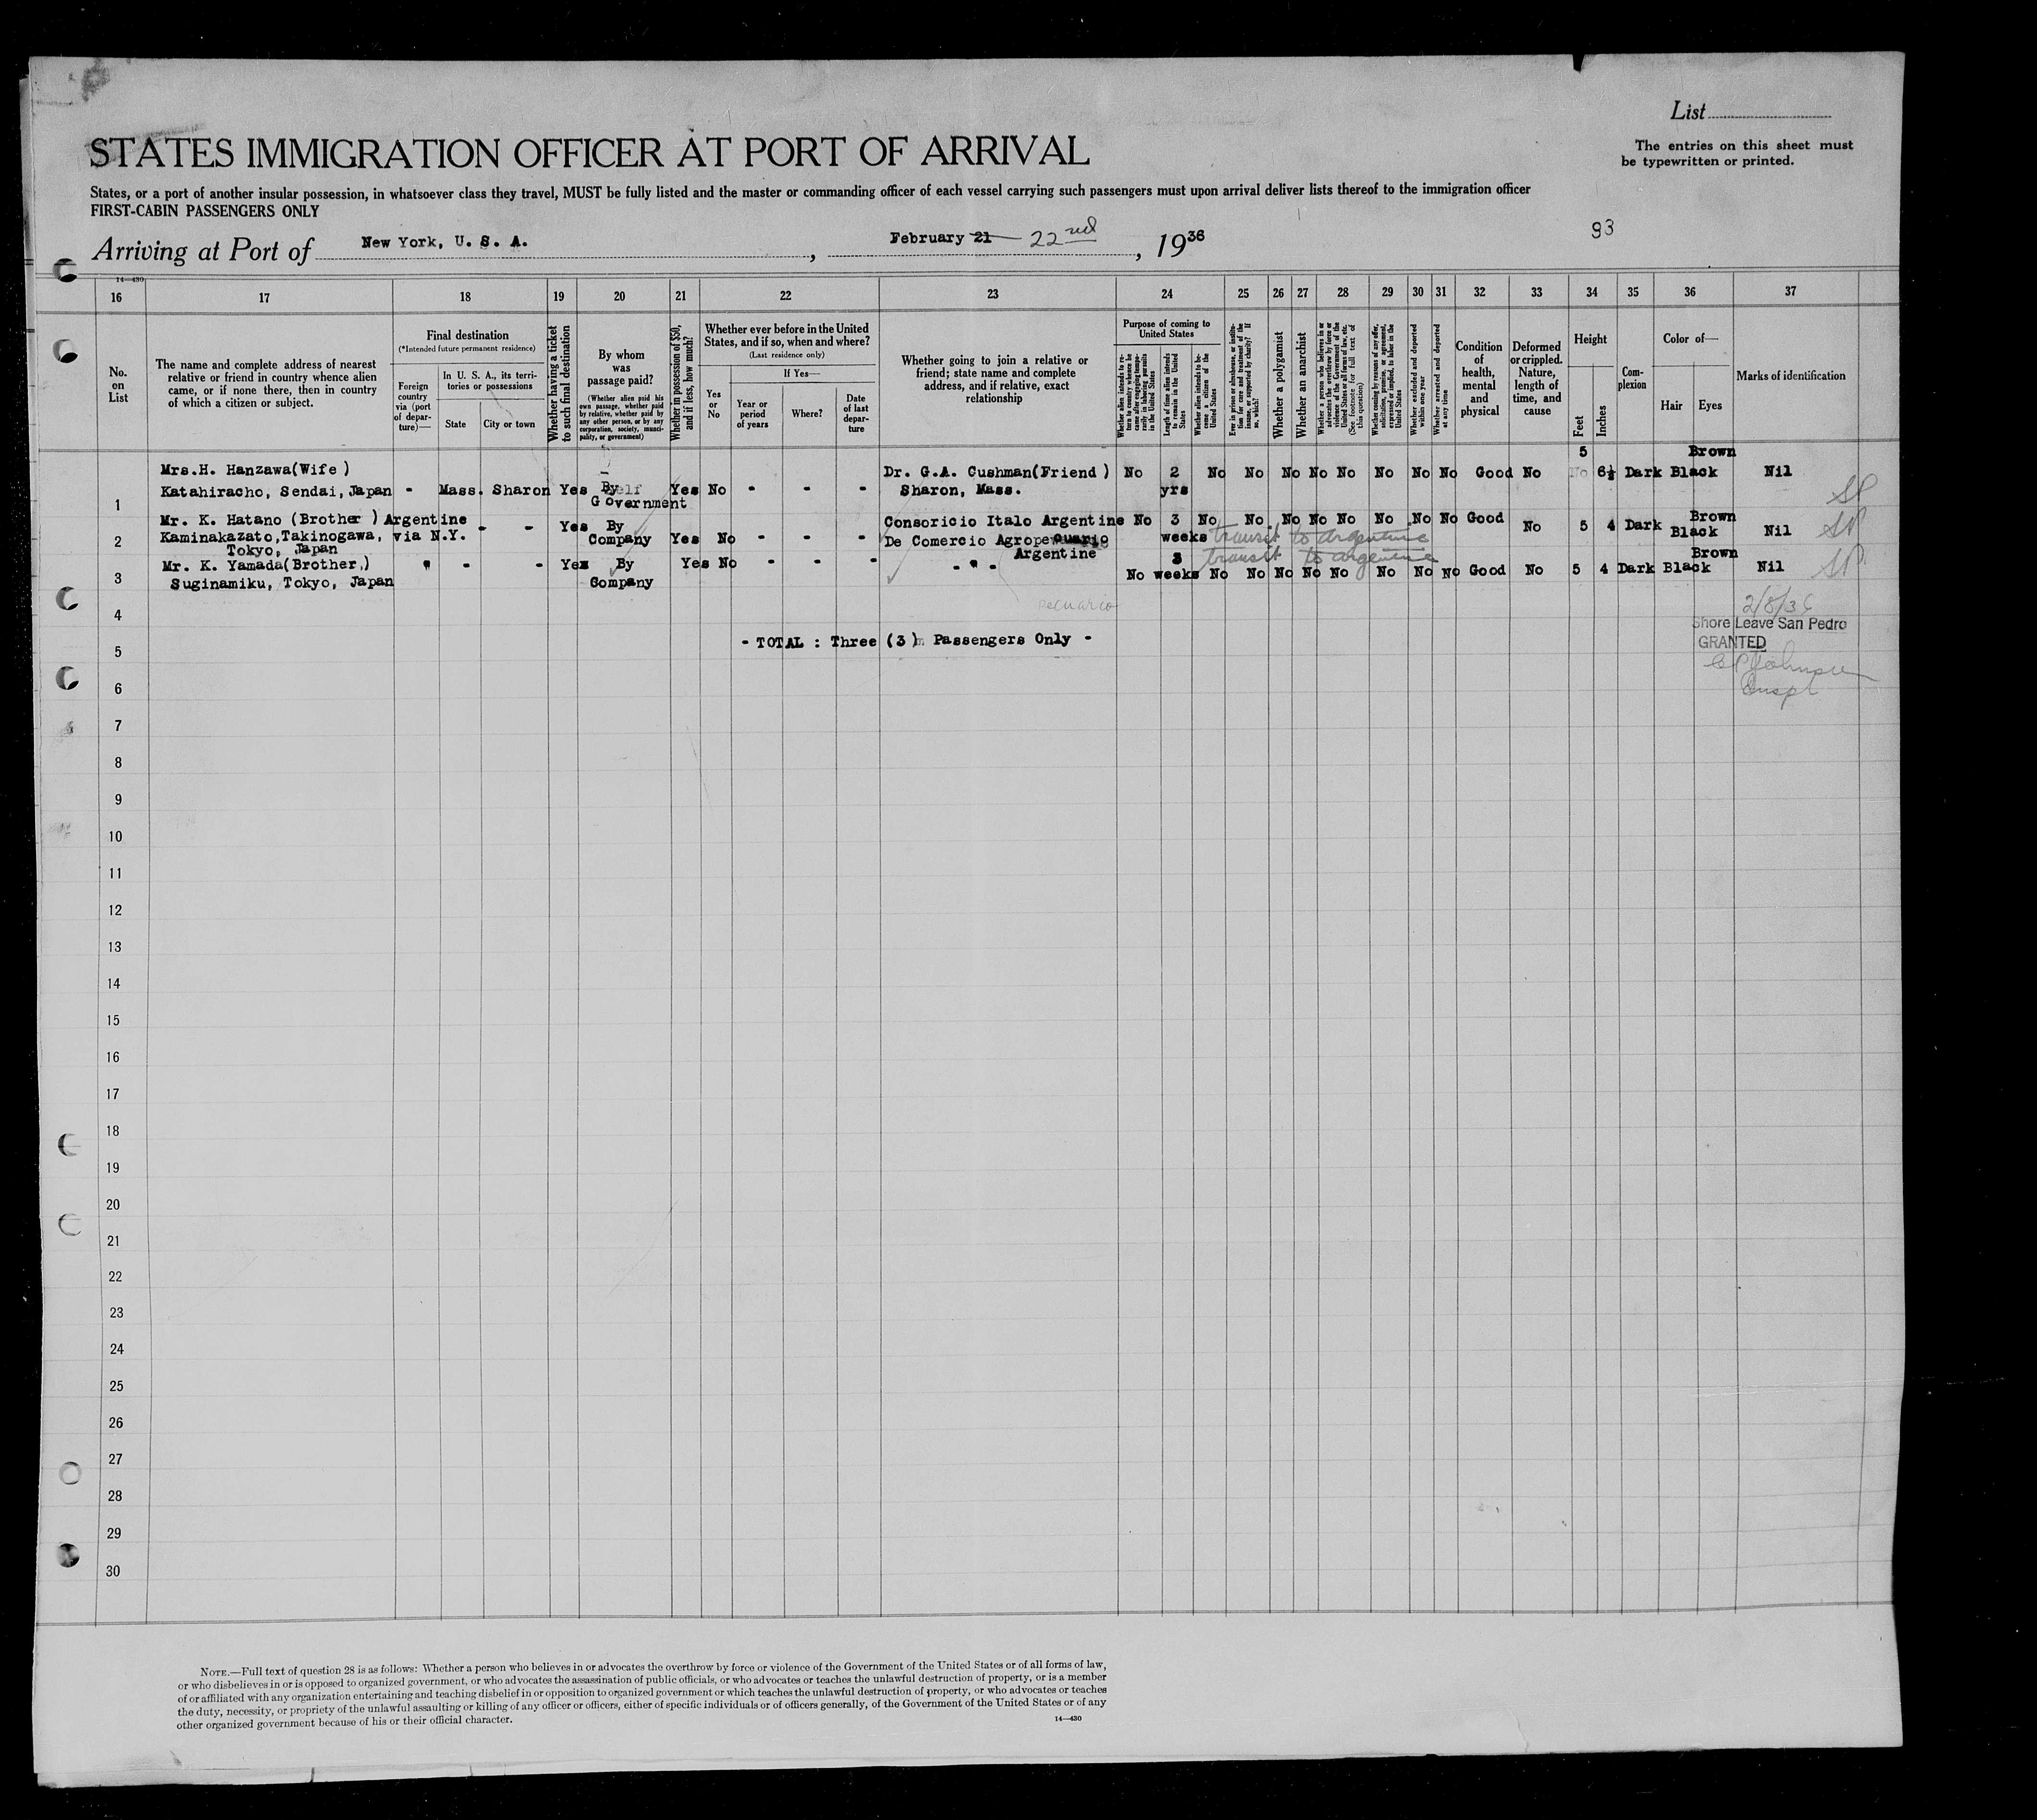 List
The entries on this sheet must
be typewritten or printed.
STATES IMMIGRATION OFFICER AT PORT OF ARRIVAL
States, or a port of another insular possession, in whatsoever class they travel, MUST be fully listed and the master or commanding officer of each vessel carrying such passengers must upon arrival deliver lists thereof to the immigration officer
FIRST-CABIN PASSENGERS ONLY
93
Arriving at Port of New York, U. S. A., February 21 22nd, 1936
14—430
16 17 18 19 20 21 22 23 24 25 26 27 28 29 30 31 32 33 34 35 36 37
No. on List
The name and complete address of nearest
relative or friend in country whence alien
came, or if none there, then in country
of which a citizen or subject.
Final destination
(*Intended future permanent residence)
Foreign
country
via (port
of depar-
ture)—
In U. S. A., its terri-
tories or possessions
State
City or town
Whether having a ticket
to such final destination
By whom
was
passage paid?
(Whether alien paid his
own passage, whether paid
by relative, whether paid by
any other person, or by any
corporation, society, munici-
pality, or government)
Whether in possession of $50,
and if less, how much?
Whether ever before in the United
States, and if so, when and where?
(Last residence only)
Yes
or
No
If Yes—
Year or
period
of years
Where?
Date
of last
depar-
ture
Whether going to join a relative or
friend; state name and complete
address, and if relative, exact
relationship
Purpose of coming to
United States
Whether alien intends to re-
turn to country whence he
came after engaging tempo-
rarily in laboring pursuits
in the United States
Length of time alien intends
to remain in the United
States
Whether alien intends to be-
come a citizen of the
United States
Ever in prison or almshouse, or institu-
tion for care and treatment of the
insane, or supported by charity? If
so, which?
Whether a polygamist
Whether an anarchist
Whether a person who believes in or
advocates the overthrow by force or
violence of the Government of the
United States or all forms of law, etc.
(See footnote for full text of
this question)
Whether coming by reason of any offer,
solicitation, promise, or agreement,
expressed or implied, to labor in the
United States
Whether excluded and deported
within one year
Whether arrested and deported
at any time
Condition
of
health,
mental
and
physical
Deformed
or crippled.
Nature,
length of
time, and
cause
Height
Feet
Inches
Com-
plexion
Color of—
Hair
Eyes
Marks of identification
Mrs.H. Hanzawa(Wife ) Dr. G.A. Cushman(Friend ) No 2 No No No No No No No No Good No 5 6½ Dark Black Brown Nil
1 Katahiracho, Sendai, Japan - Mass. Sharon Yes By Government Yes No - - - Sharon, Mass. yrs SP
Mr. K. Hatano (Brother ) Argentine - - Yes By Consoricio Italo Argentine No 3 No No No No No No No No Good No 5 4 Dark Black Brown Nil
2 Kaminakazato,Takinogawa, via N.Y. Company Yes No - - - De Comercio Agrope weeks transit to argentine SP
Tokyo, Japan Argentine
Mr. K. Yamada(Brother,) " - - Yes By Yes No - - - - " - 3 transit to argentine Brown
3 Suginamiku, Tokyo, Japan Company No weeks No No No No No No No No Good No 5 4 Dark Black Nil SP
pecuario
4
- TOTAL : Three (3) Passengers Only -
2/8/36
Shore Leave San Pedro
GRANTED
Johnson
Inspt
5
6
7
8
9
10
11
12
13
14
15
16
17
18
19
20
21
22
23
24
25
26
27
28
29
30
NOTE.—Full text of question 28 is as follows: Whether a person who believes in or advocates the overthrow by force or violence of the Government of the United States or of all forms of law,
or who disbelieves in or is opposed to organized government, or who advocates the assassination of public officials, or who advocates or teaches the unlawful destruction of property, or is a member
of or affiliated with any organization entertaining and teaching disbelief in or opposition to organized government or which teaches the unlawful destruction of property, or who advocates or teaches
the duty, necessity, or propriety of the unlawful assaulting or killing of any officer or officers, either of specific individuals or of officers generally, of the Government of the United States or of any
other organized government because of his or their official character.
14—430